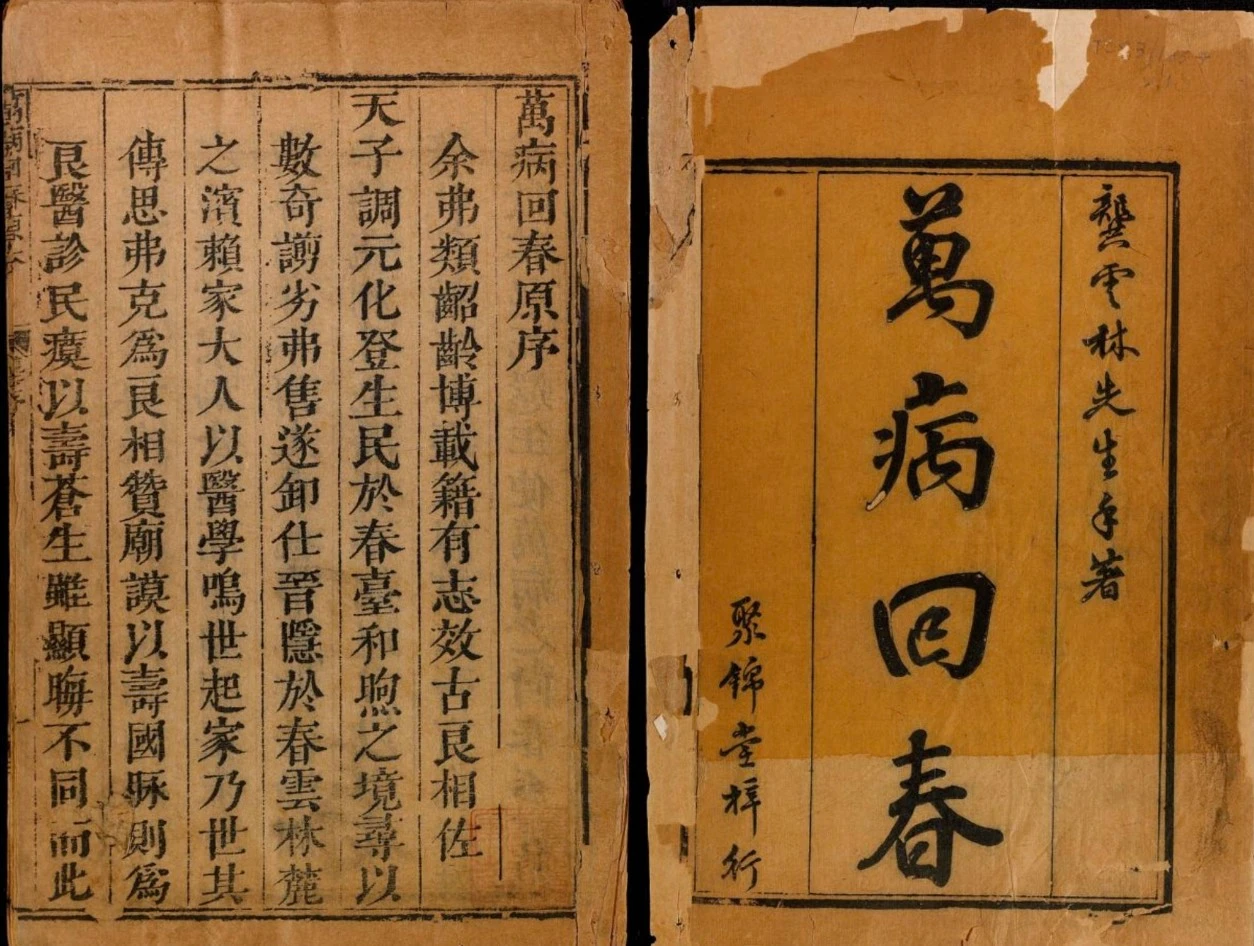 龔雲林先生手著
萬病回春
聚錦堂梓行
萬病回春原序
余弗類齠齡博載籍有志效古良相佐
天子調元化登生民於春臺和煦之境尋以
數奇謭劣弗售遂卸仕晉隱於春雲林麓
之濱賴家大人以醫學鳴世起家乃世其
傳思弗克爲良相贊廟謨以壽國脉則爲
良醫診民瘼以壽蒼生雖顯晦不同而此